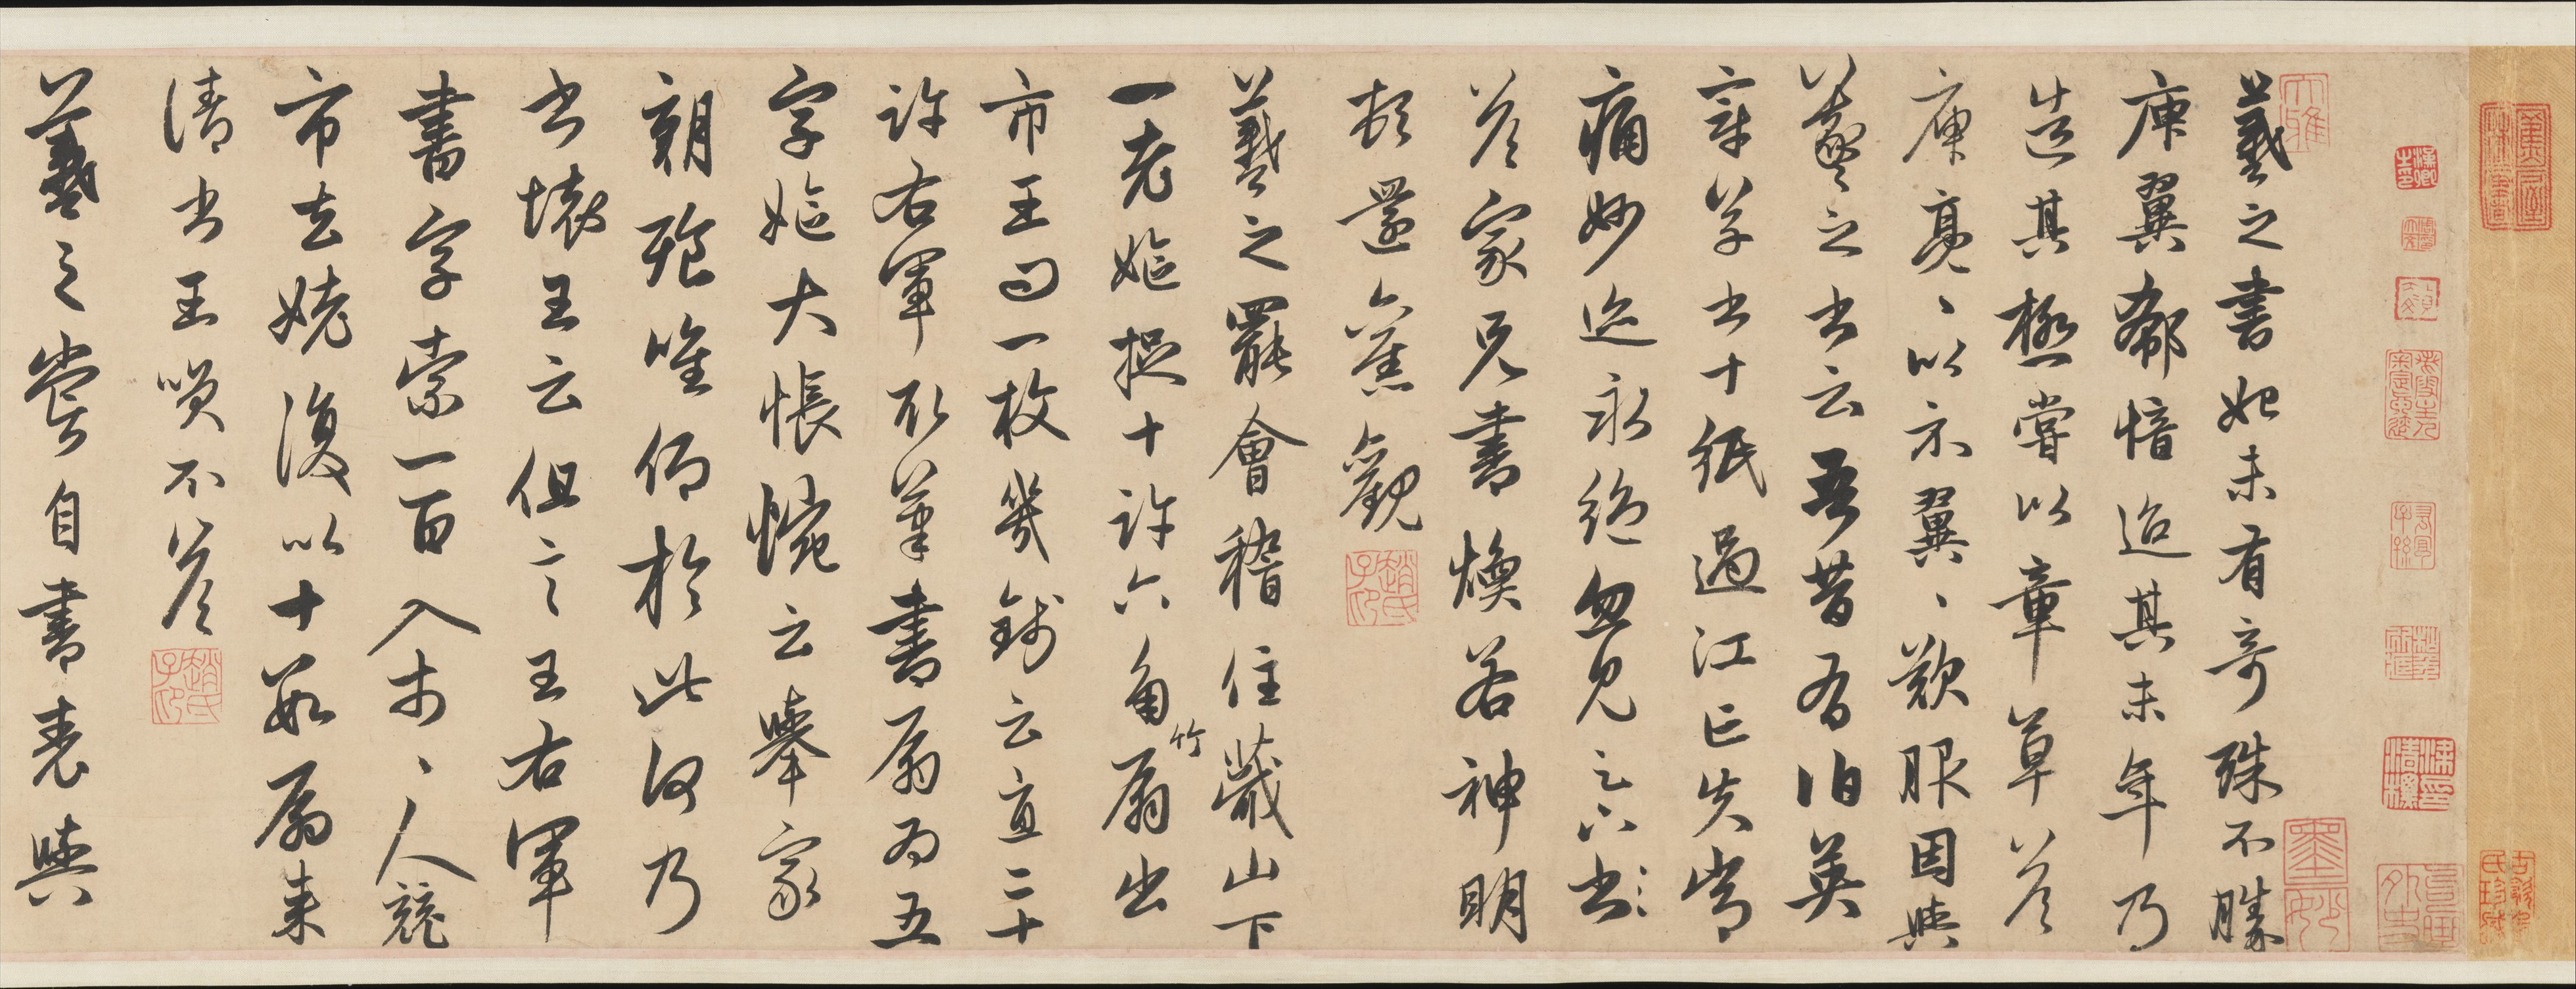 羲之書初未有奇殊不勝
庾翼郗愔迨其末年乃
造其極嘗以章草荅
庾亮〻以示翼〻歎服因與
羲之書云吾昔有伯英
章草書十紙過江亡失常
痛妙迹永絶忽見足下書
荅家兄書煥若神明
頓還舊觀
羲之罷會稽住蕺山下
一老嫗捉十許六角竹扇出
市王問一枚幾錢云直二十
許右軍取筆書扇為五
字嫗大悵惋云舉家
朝飱唯仰於此何乃
書壞王云但言王右軍
書字索一百入市〻人競
市去姥復以十數扇来
請書王笑不荅
羲之嘗自書表與
趙氏子昂
趙氏子昂
大雅